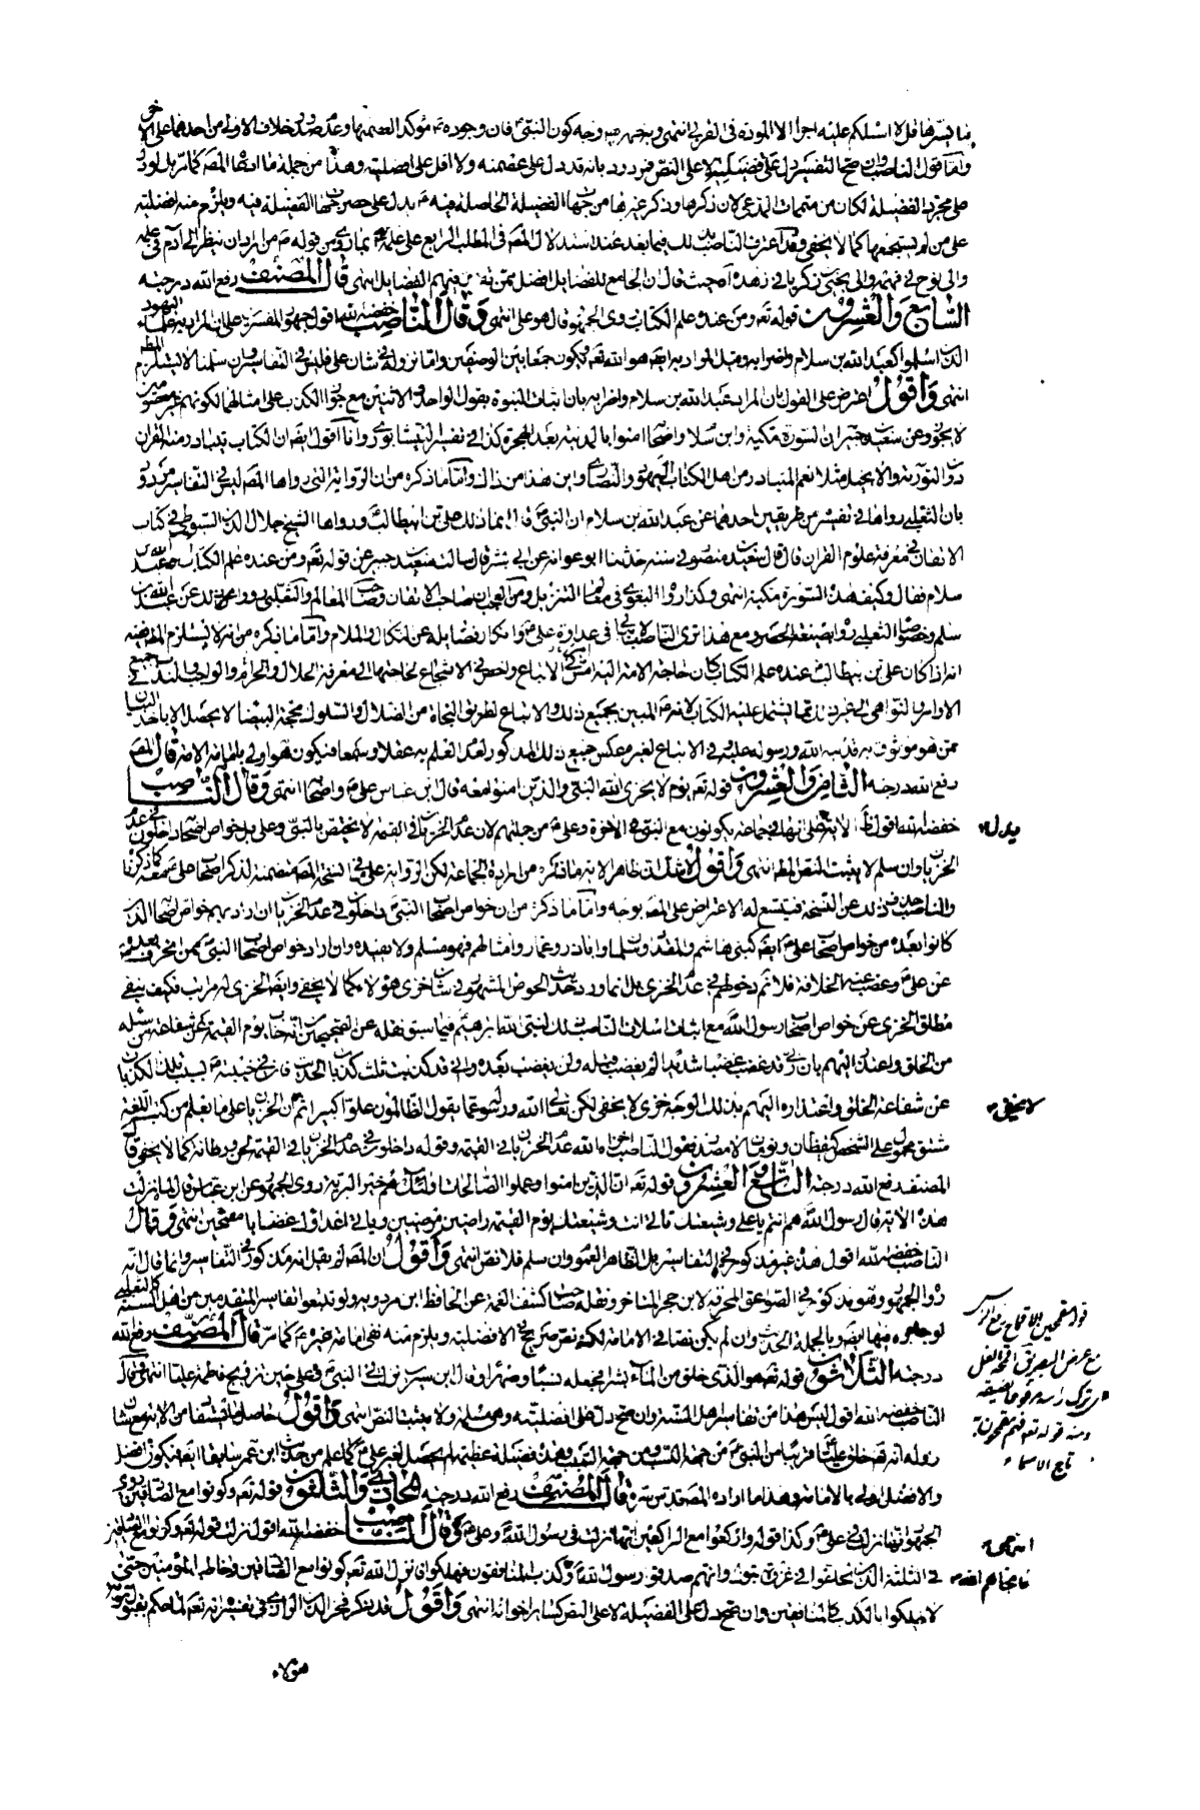 قل لا اسئلكم عليه اجرا الا المودة فى القربى انتهى وجه كون النبى فان وجوده مؤكد العصمتها وعدم صدور خلاف الاولى من احدهما على
واما قول الناصب وان صح التفسير دل على فضيلته لا على النص فمردود بانه قد دل على عصمته ولا اقل على افضليته وهذا من جملة ما ادعاه المصـ كما مر بل لو دل
على مجرد الفضيلة لكان من متممات المدعى لان ذكرها وذكر غيرها من جهات الفضيلة الحاصلة فيه يدل على حصر جهات الفضيلة فيه ويلزم منه افضليته
على من لم يستجمعها كما لا يخفى وقد اعترف الناصب بذلك فيما بعد عند استدلال المصـ فى المطلب الرابع على علمه بما روى من قوله من اراد ان ينظر الى آدم فى علمه
والى نوح فى فهمه والى يحيى بن زكريا فى زهده آه حيث قال ان الجامع للفضايل افضل ممن تفرق فيهم الفضايل انتهى قال المصنف رفع الله درجته
السابع والعشرون قوله تعـ ومن عنده علم الكتاب روى الجمهور قال هو على انتهى وقال الناصب خفضه الله اقول جمهور المفسرين على ان المراد به علماء اليهود
الذين اسلموا كعبد الله بن سلام واضرابه وقيل المراد به ايضـ هو الله تعـ ويكون جمعا بين الوصفين واما نزوله فى شان على فليس فى التفاسير وان سلمنا لا يستلزم المطـ
انتهى واقول اعترض على القول بان المراد عبد الله بن سلام واضرابه بان اثبات النبوة بقول الواحد والاثنين مع جواز الكذب على امثالهما لكونهم غير معصومين
لا يجوز وعن سعيد بن جبير ان السورة مكية وابن سلام واصحابه امنوا بالمدينة بعد الهجرة كذا فى تفسير النيشابورى وانا اقول ايضـ ان الكتاب يتبادر منه القرآن
دون التورية والانجيل مثلا نعم المتبادر من اهل الكتاب اليهود والنصارى واين هذا من ذاك واما ما ذكره من ان الرواية التى رواها المصـ ليس فى التفاسير مردود
بان الثعلبى رواها فى تفسيره من طريقين احدهما عن عبد الله بن سلام ان النبى قال انما ذلك على بن ابيطالب ورواها الشيخ جلال الدين السيوطى فى كتاب
الاتقان فى معرفة علوم القرآن قال قال سعيد بن منصور فى سننه حدثنا ابو عوانة عن ابى بشر قال سالت سعيد بن جبير عن قوله تعـ ومن عنده علم الكتاب اهو عبد الله بن
سلام فقال وكيف وهذه السورة مكية انتهى وكذا رواه البغوى فى معالم التنزيل ومن العجب ان صاحب الاتقان وصاحب المعالم والثعلبى رووا عن عبد الله بن
سلام وخصوصا الثعلبى رواه بصيغة الحصر ومع هذا ترى الناصب لا يبالى فى عداوة على وانكار فضايله عن النكال والملام واما ما ذكره من انه لا يستلزم المدعى ففيه
انه اذا كان على بن ابيطالب عنده علم الكتاب كان حاجة الامة اليه امس واولى الاتباع واحق فى الاشجاع لحاجتها الى معرفة الحلال والحرام والواجب والندب فى جميع
الاوامر والنواهى الى غير ذلك مما يشتمل عليه الكتاب لانه المبين بجميع ذلك والاتباع لطريق النجاة من الضلال والسلوك محجة البيضا لا يحصل الا باخذ الدين
ممن هو موثوق به قرنه الله ورسوله عليه فى الاتباع لغيره عكس جميع ذلك المذكور لعدم العلم به عقلا وسمعا فيكون هو اولى بامامة الامة قال المصـ
رفع الله درجته الثامن والعشرون قوله تعـ يوم لا يخزى الله النبى والذين امنوا معه قال ابن عباس على واصحابه انتهى وقال الناصب
خفضه الله اقول ظاهر الاية يدل على انها فى جماعة يكونون مع النبى فى الاخرة وعلى من جملتهم لان عدم الخزيان فى القيمة لا يختص بالنبى وعلى بل خواص اصحابه داخلون فى عدم
الخزيان وان سلم لا يثبت النص المط انتهى واقول لا شك ان ظاهر الاية ما ذكره من ارادة الجماعة لكن الرواية على ما فى النسخة المصـ متضمنة لذكر اصحاب على معه كما ذكرنا
والناصب حذف ذلك عن النسخة فيتسع له الاعتراض على المصـ بوجه واما ما ذكره من ان خواص اصحاب النبى داخلون فى عدم الخزيان ان اراد بهم خواص اصحابه الذين
كانوا بعده من خواص اصحاب على ايضـ كبنى هاشم والمقداد وسلمان وابا ذر وعمار وامثالهم فهو مسلم ولا يفيده وان اراد خواص اصحاب النبى ممن انحرف بعده
عن على وغصب عنه الخلافة فلا نم دخولهم فى عدم الخزى بل انما ورد حديث الحوض المشهور فى شان خزى هؤلاء كما لا يخفى وايضـ الخزى له مراتب فكيف ينفى
مطلق الخزى عن خواص اصحاب رسول الله مع اثبات اسلاف الناصب ذلك لنبى الله ابرهيم فيما سبق نقله عن الصحيحين انه خاب يوم القيمة عن شفاعة من سئله
من الخلق واعتذر اليهم بان ربى قد غضب غضبا شديدا لم يغضب قبله ولن يغضب بعده وانى قد كذبت ثلث كذبات الحديث فان فى خيبته بسبب تلك الكذبات
عن شفاعة الخلق واعتذاره اليهم بذلك الوجه خزى لا يخفى لكن تعالى الله ورسوله عما يقول الظالمون علوا كبيرا ثم ان الخزيان على ما يعلم من كتب اللغة
مشتق محمول على الشخص كيقظان ونومان لا مصدر فقول الناصب اخزاه الله عدم الخزيان فى القيمة وقوله داخلون فى عدم الخزيان فى القيمة لحن وبطانة كما لا يخفى قال
المصنف رفع الله درجته التاسع والعشرون قوله تعـ ان الذين امنوا وعملوا الصالحات اولئك هم خير البرية روى الجمهور عن ابن عباس قال لما نزلت
هذه الاية قال رسول الله هم انت يا على وشيعتك تأتى انت وشيعتك يوم القيمة راضين مرضيين ويأتى اعداؤك غضابا مقمحين انتهى وقال
الناصب خفضه الله اقول هذا غير مذكور فى التفاسير بل الظاهر العموم وان سلم فلا نص انتهى واقول ان المصـ لم يقل انه مذكور فى التفاسير وانما قال انه
رواه الجمهور وهو مذكور فى الصواعق المحرقة لابن حجر المتاخر ونقله صاحب كشف الغمة عن الحافظ ابن مردويه ولو تتبعوا تفاسير المتقدمين من اهل السنة كالثعلبى
لوجدوه فيها ايضـ وبالجملة الحديث وان لم يكن نصا فى الامامة لكنه نص صريح فى الافضلية ويلزم منه نفى امامة غيره كما مر قال المصنف رفع الله
درجته الثلاثون قوله تعـ هو الذى خلق من الماء بشرا فجعله نسبا وصهرا قال ابن سيرين نزلت فى النبى وعلى حين زوج فاطمة عليا انتهى قال
الناصب خفضه الله اقول ليس هذا من تفاسير اهل السنة وان صح دل على افضليته وهو مسلم ولا يثبت النص انتهى واقول حاصل ما يستفاد من الاية مع شان
نزوله انه تعـ خلق عليا قريبا من النبى من جهة النسب ومن جهة السبب وهذه فضيلة عظيمة لم يحصل لغير على كما علم من حديث ابن عمر سابقا ايضـ فيكون افضل
والافضل اولى بالامامة وهذا ما اراده المصـ قدس سره قال المصنف رفع الله درجته الحادى والثلاثون قوله تعـ وكونوا مع الصادقين روى
الجمهور انها نزلت فى على وكذا قوله واركعوا مع الراكعين انها نزلت فى رسول الله وعلى وقال الناصب خفضه الله اقول نزلت قوله تعـ وكونوا مع الصادقين
فى الثلثة الذين تخلفوا فى غزوة تبوك وانهم صدقوا رسول الله وكذب المنافقون فهلكوا فانزل الله تعـ كونوا مع الصادقين وخاطب المؤمنين حتى
لا يهلكوا بالكذب كالمنافقين وان صح دل على الفضيلة لا على النص كساير اخواته انتهى واقول قد ذكر فخر الدين الرازى فى تفسيره انه تعـ لما حكم بقبول توبة
هؤلاء
يدل
لا يخفى
قوله مقمحين الاقماح رفع الراس
مع غض البصر يق اقمحه الغل
اى ترك راسه مرفوعا لضيقه
ومنه قوله تعـ فهم مقمحون
تاج الاسماء
انتهى
فانجاهم الله